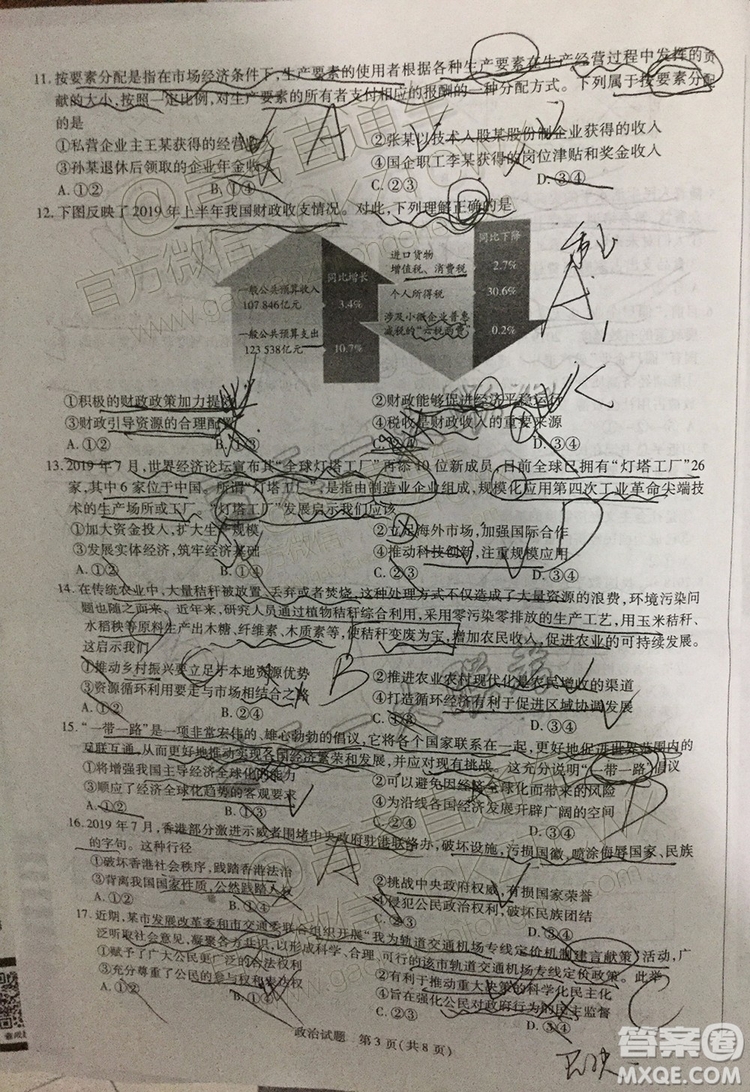 11. 按要素分配是指在市场经济条件下,生产要素的使用者根据各种生产要素在生产经营过程中发挥的贡
献的大小,按照一定比例,对生产要素的所有者支付相应的报酬的一种分配方式。下列属于按要素分配
的是
①私营企业主王某获得的经营收入 ②张某以技术入股某股份制企业获得的收入
③孙某退休后领取的企业年金收入 ④国企职工李某获得的岗位津贴和奖金收入
A. ①② B. ①③ C. ②④ D. ③④
12. 下图反映了 2019 年上半年我国财政收支情况。对此,下列理解正确的是
同比增长
一般公共预算收入
107 846亿元
3.4%
一般公共预算支出
123 538亿元
10.7%
同比下降
进口货物
增值税、消费税
2.7%
个人所得税
30.6%
涉及小微企业普惠
减税的“六税两费”
0.2%
①积极的财政政策加力提效 ②财政能够促进经济平稳运行
③财政引导资源的合理配置 ④税收是财政收入的重要来源
A. ①② B. ①③ C. ②④ D. ③④
13. 2019 年 7 月,世界经济论坛宣布其“全球灯塔工厂”再添 10 位新成员,目前全球已拥有“灯塔工厂”26
家,其中 6 家位于中国。所谓“灯塔工厂”,是指由制造业企业组成,规模化应用第四次工业革命尖端技
术的生产场所或工厂。“灯塔工厂”发展启示我们应该
①加大资金投入,扩大生产规模 ②立足海外市场,加强国际合作
③发展实体经济,筑牢经济基础 ④推动科技创新,注重规模应用
A. ①② B. ①③ C. ②④ D. ③④
14. 在传统农业中,大量秸秆被放置、丢弃或者焚烧,这种处理方式不仅造成了大量资源的浪费,环境污染问
题也随之而来。近年来,研究人员通过植物秸秆综合利用,采用零污染零排放的生产工艺,用玉米秸秆、
水稻秧等原料生产出木糖、纤维素、木质素等,使秸秆变废为宝,增加农民收入,促进农业的可持续发展。
这启示我们
①推动乡村振兴要立足于本地资源优势 ②推进农业农村现代化是农民增收的渠道
③资源循环利用要走与市场相结合之路 ④打造循环经济有利于促进区域协调发展
A. ①② B. ②④ C. ①③ D. ③④
15. “一带一路”是一项非常宏伟的、雄心勃勃的倡议,它将各个国家联系在一起,更好地促进世界范围内的
互联互通,从而更好地推动实现各国经济繁荣和发展,并应对现有挑战。这充分说明“一带一路”倡议
①将增强我国主导经济全球化的能力 ②可以避免因经济全球化而带来的风险
③顺应了经济全球化趋势的客观要求 ④为沿线各国经济发展开辟广阔的空间
A. ①② B. ①③ C. ②④ D. ③④
16. 2019 年 7 月,香港部分激进示威者围堵中央政府驻港联络办,破坏设施,污损国徽,喷涂侮辱国家、民族
的字句。这种行径
①破坏香港社会秩序,践踏香港法治 ②挑战中央政府权威,有损国家荣誉
③背离我国国家性质,公然践踏人权 ④侵犯公民政治权利,破坏民族团结
A. ①② B. ①③ C. ②④ D. ③④
17. 近期,某市发展改革委和市交通委联合组织开展“我为轨道交通机场专线定价机制建言献策”活动,广
泛听取社会意见,凝聚各方共识,以形成科学、合理、可行的该市轨道交通机场专线定价政策。此举
①赋予了广大公民民主监督的合法权利 ②有利于推动重大决策的科学化民主化
③充分尊重了公民的参与权和表达权 ④旨在增强公民对政府行为的民主监督
A. ①② B. ①④ C. ②③ D. ③④
政治试题 第 3 页(共 8 页)
答案圈
MXQE.COM